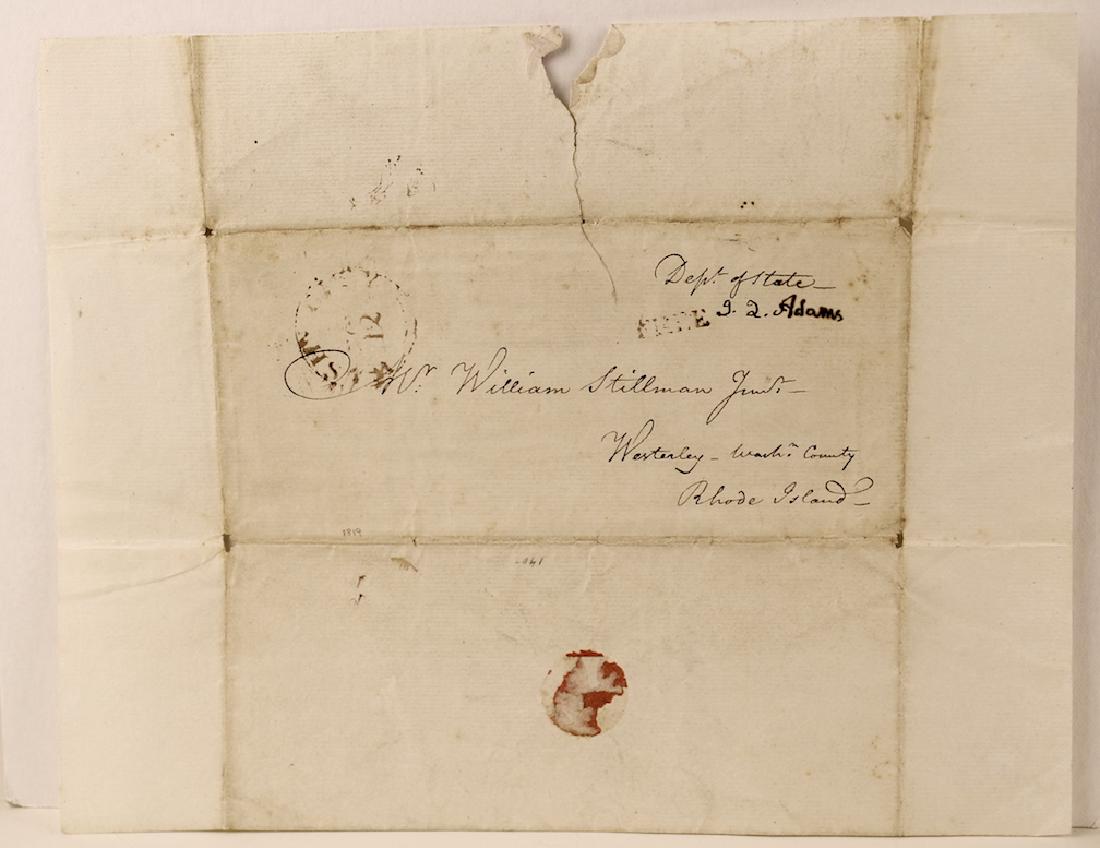 Dept. of State
J. Q. Adams
FREE
12
Mr. William Stillman Junr.
Westerley - Washn. County
Rhode Island